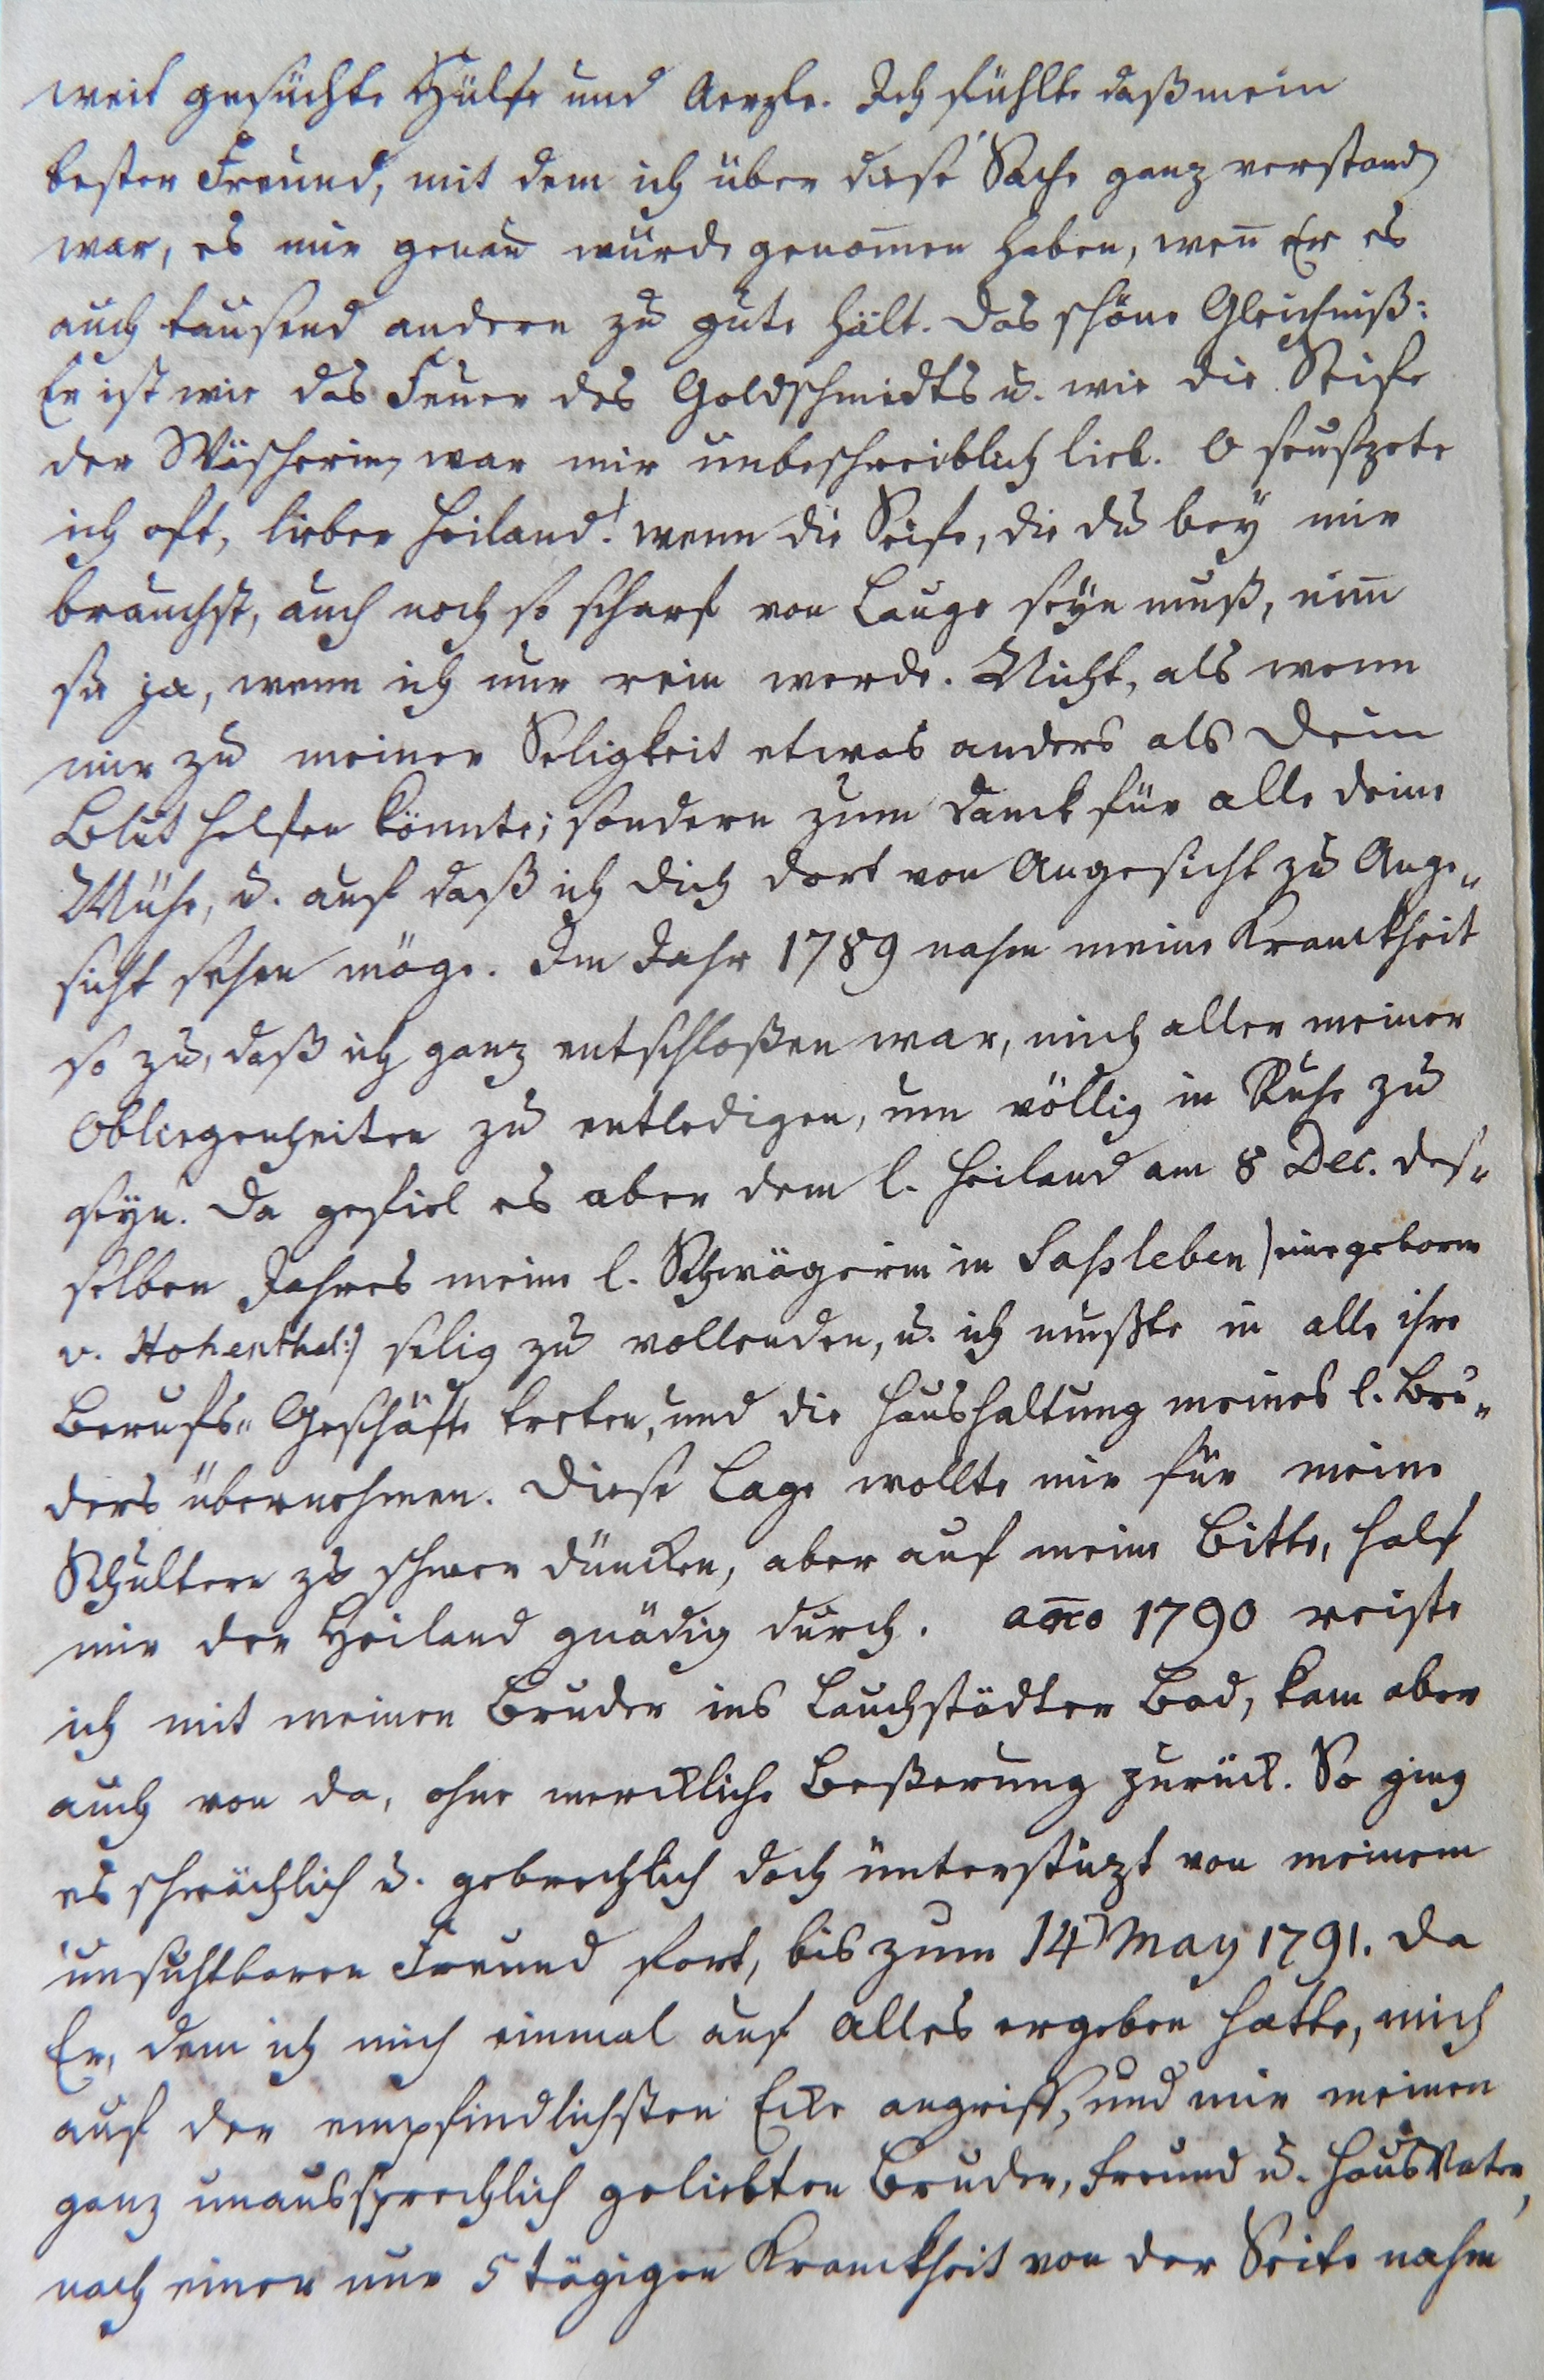 weit gesuchte Hülfe und Aerzte. Ich fühlte daß mein
bester Freund, mit dem ich über diese Sache ganz verstand
war, es mir genau würde genom̅en haben, wen̅ Er es
auch tausend andern zu gute hält. Das schöne Gleichniß:
Er ist wie das Feuer des Goldschmidts u. wie die Seife
der Wäscherin, war mir unbeschreiblich lieb. O seufzete
ich oft, lieber Heiland! wenn die Seife, die du bey mir
brauchst, auch noch so scharf von Lauge seyn muß, nim̅
sie ja, wenn ich nur rein werde. Nicht, als wenn
mir zu meiner Seligkeit etwas anders als Dein
Blut helfen könnte; sondern zum Danck für alle deine
Mühe, u. auf daß ich dich dort von Angesicht zu Ange„
sicht sehen möge. Im Jahr 1789 nahm meine Kranckheit
so zu, daß ich ganz entschloßen war, mich aller meiner
Obliegenheiten zu entledigen, um völlig in Ruhe zu
seyn. Da gefiel es aber dem l. Heiland am 8 Dec. des„
selben Jahres meine l. Schwägerin in Saßleben) eine geborne
v. Hohenthal:) selig zu vollenden, u. ich mußte in alle ihre
Berufs„ Geschäfte treten, und die Haushaltung meines l. Bru„
ders übernehmen. Diese Lage wollte mir für meine
Schultern zu schwer düncken, aber auf meine Bitte, half
mir der Heiland gnädig durch. an̅o 1790 reiste
ich mit meinen Bruder ins Lauchstädter Bad, kam aber
auch von da, ohne merckliche Beßerung zurück. So ging
es schwächlich u. gebrechlich doch unterstüzt von meinem
unsichtbaren Freund fort, bis zum 14 May 1791. Da
Er, dem ich mich einmal auf alles ergeben hatte, mich
auf der empfindlichsten Ecke angriff, und mir meinen
ganz unaussprechlich geliebten Bruder, Freund u. HausVater,
nach einer nur 5 tägigen Kranckheit von der Seite nahm